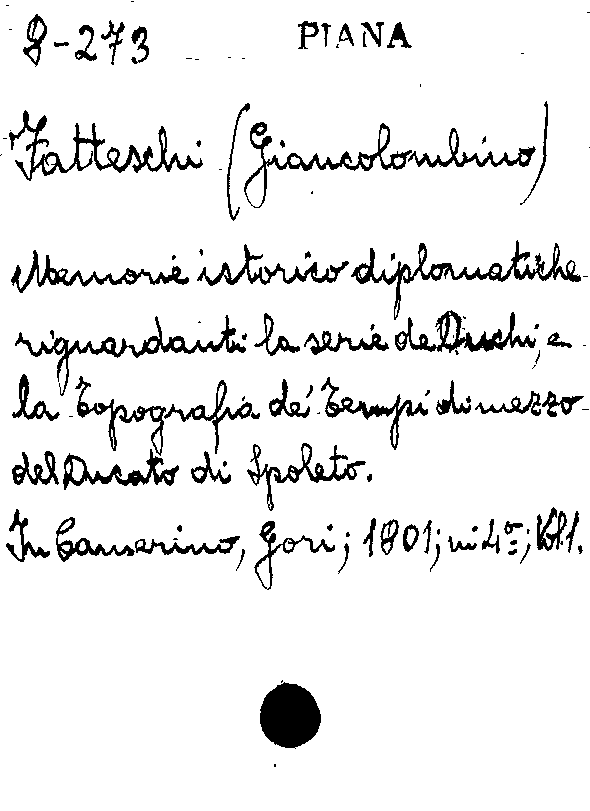 8-273 PIANA
Fatteschi (Giancolombino)
Memorie istorico diplomatiche
riguardanti la serie de Duchi, e
la Topografia de' Tempi di mezzo
del Ducato di Spoleto.
In Camerino, Gori; 1801; in 4º; Vol. 1.